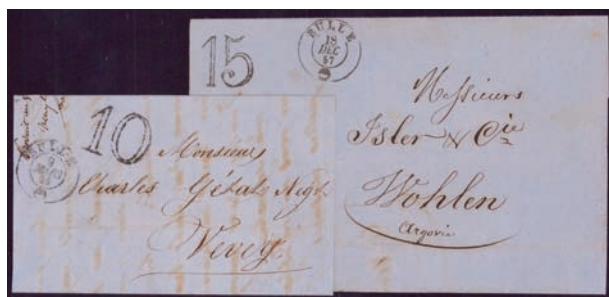 15
BULLE
18
DEC
57
Messieurs
Isler & Cie
Wohlen
Argovie
10
BULLE
9
Monsieur
Charles Négt
Vevey